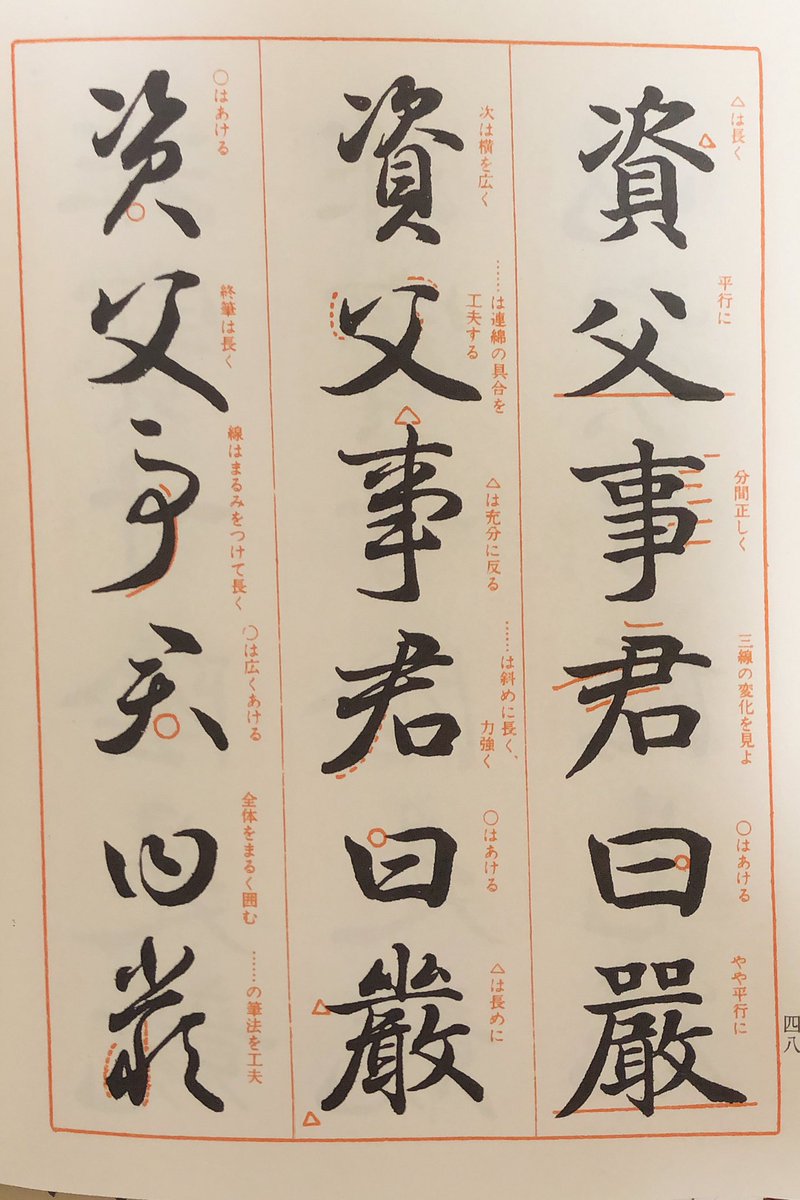 資父事君曰嚴
△は長く
平行に
分間正しく
三線の変化を見よ
○はあける
やや平行に
資父事君曰嚴
次は横を広く
……は連綿の具合を
工夫する
△は充分に反る
……は斜めに長く、
力強く
○はあける
△は長めに
資父事君曰嚴
○はあける
終筆は長く
線はまるみをつけて長く
○は広くあける
全体をまるく囲む
……の筆法を工夫
四八